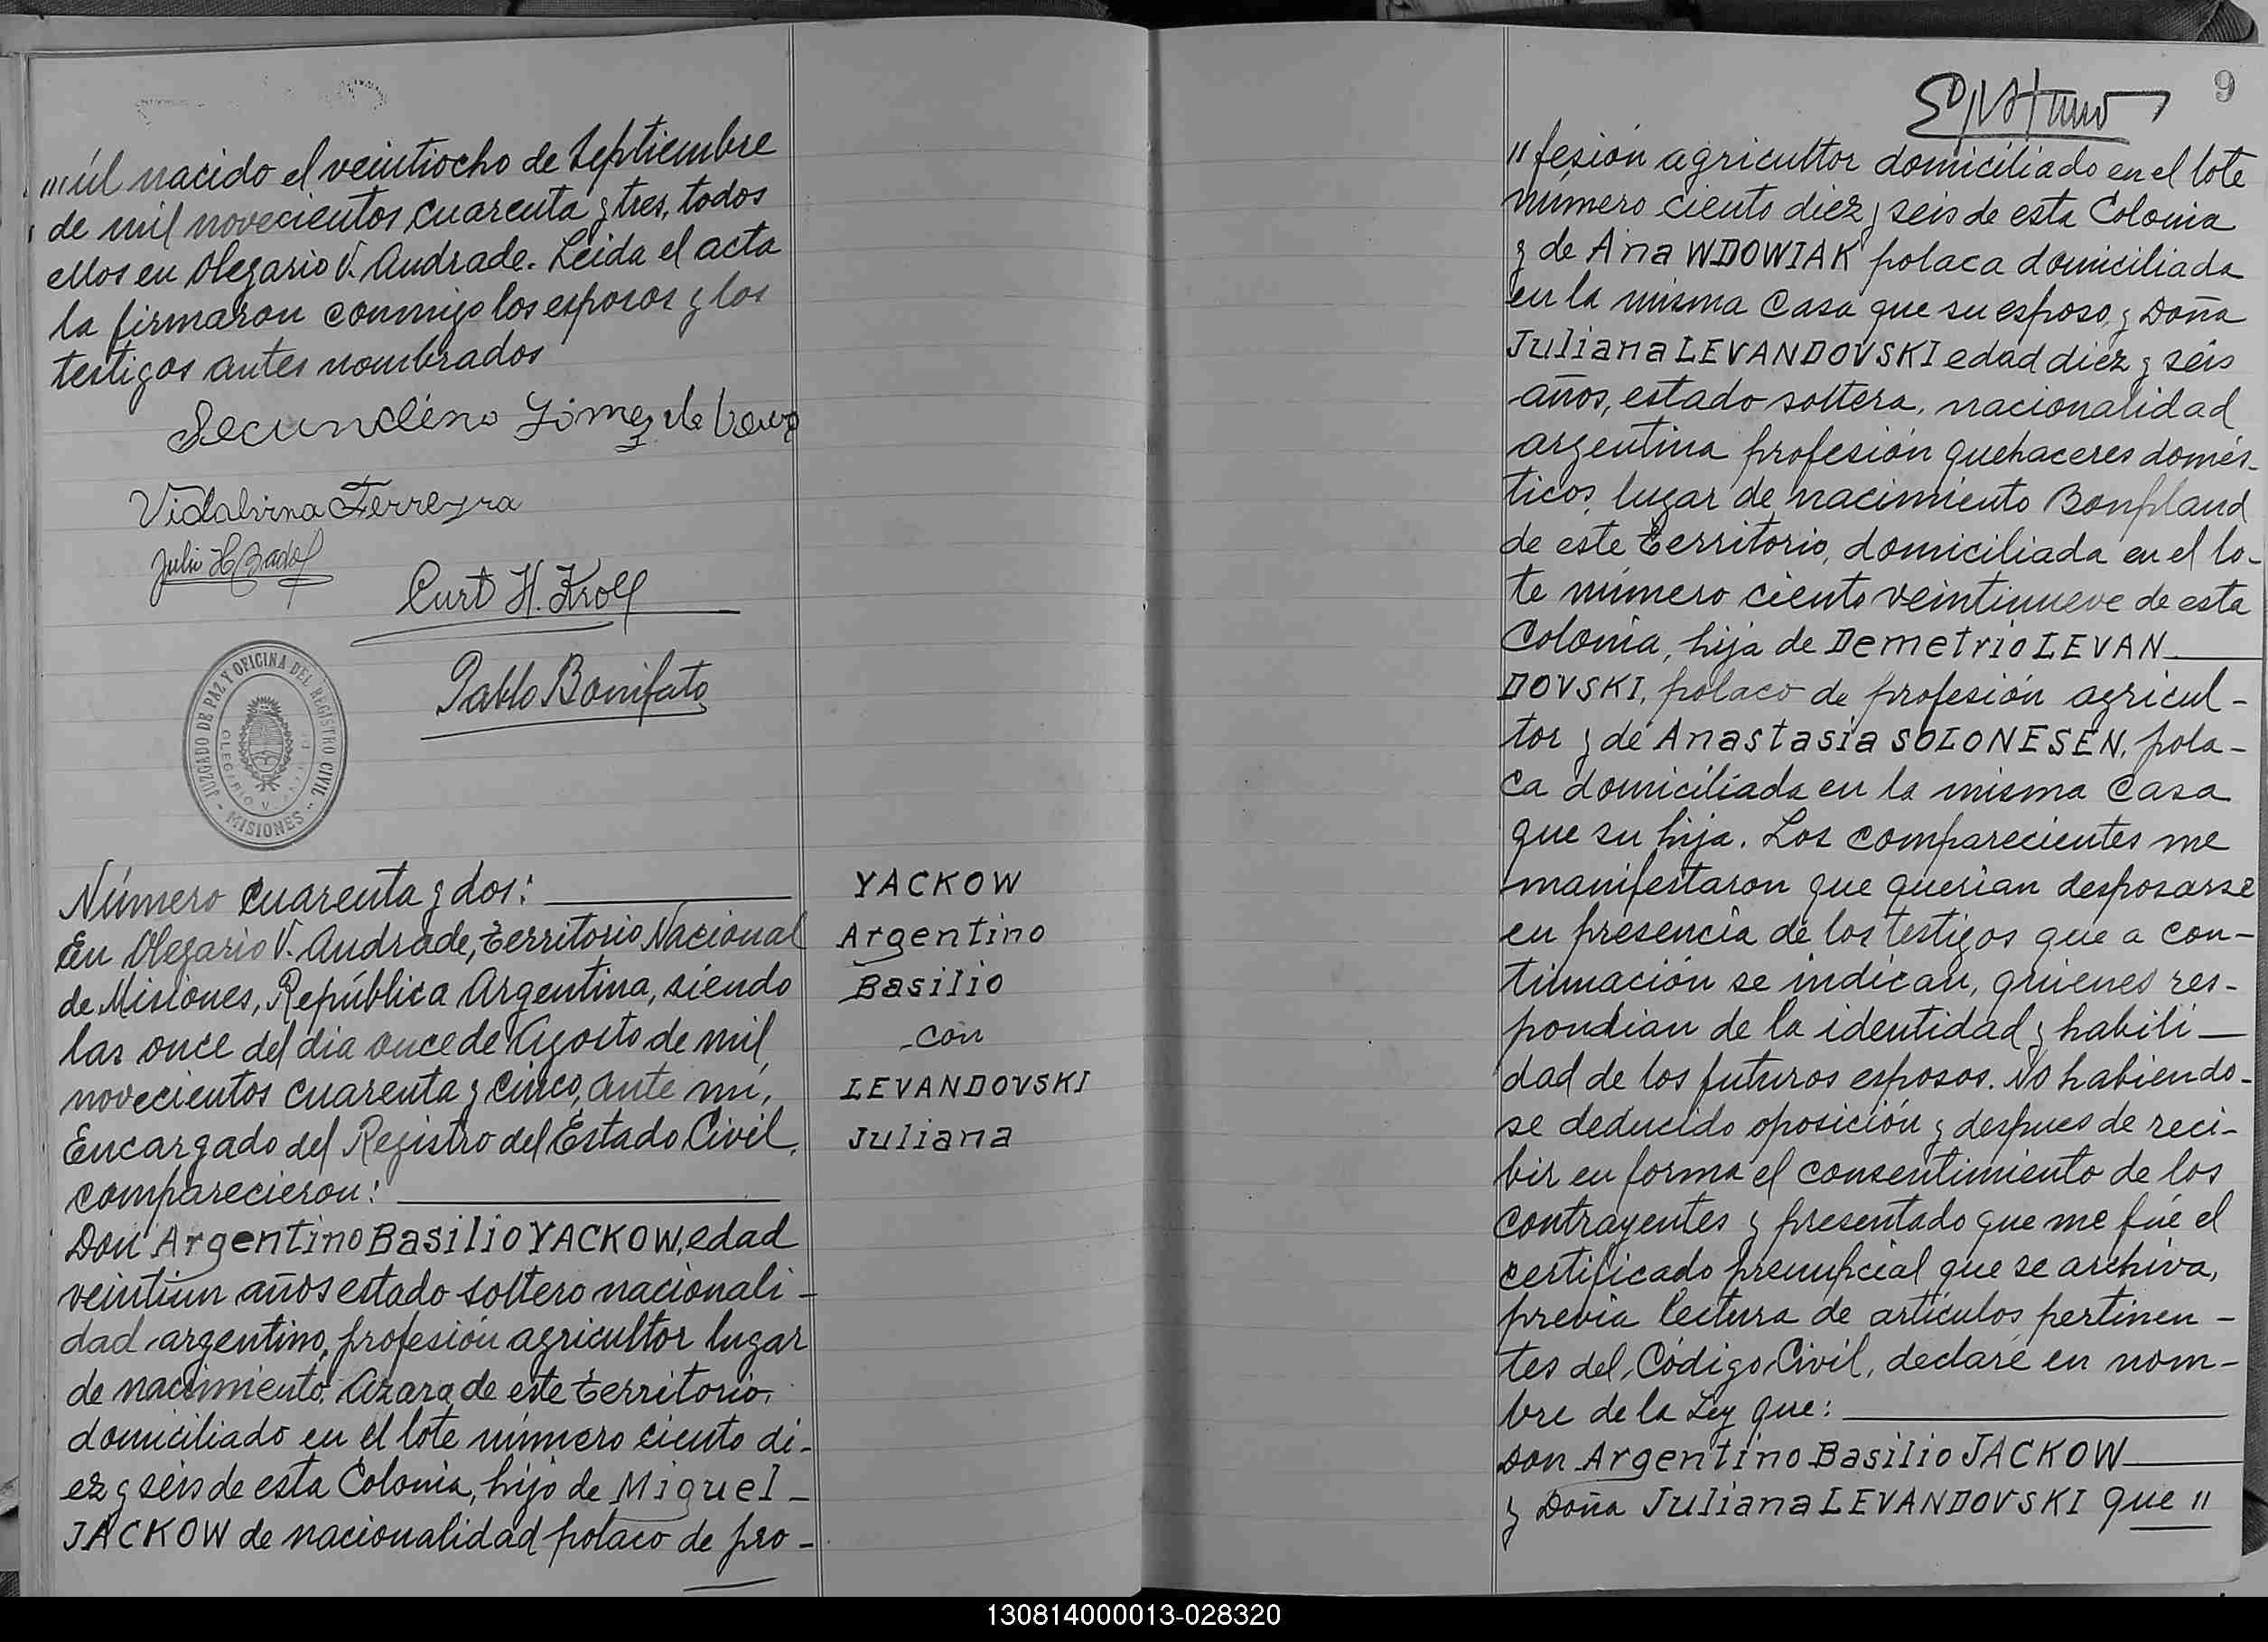 "" úl nacido el veintiocho de Septiembre
de mil novecientos cuarenta y tres, todos
ellos en Olegario V. Andrade. Leida el acta
la firmaron conmigo los esposos y los
testigos antes nombrados
Secundino Gómez de
Vidalvina Ferreyra
Julio H.
Curt H. Kroll
Pablo Bonifato
JUZGADO DE PAZ Y OFICINA DEL REGISTRO CIVIL
OLEGARIO V.
- MISIONES -
Número cuarenta y dos:
En Olegario V. Andrade, territorio Nacional
de Misiones, República Argentina, siendo
las once del dia once de Agosto de mil
novecientos cuarenta y cinco, ante mi,
Encargado del Registro del Estado Civil,
comparecieron:
Don Argentino Basilio YACKOW, edad
veintiun años estado soltero nacionali-
dad argentino, profesión agricultor lugar
de nacimiento, Azara de este territorio,
domiciliado en el lote número ciento di-
ez y seis de esta Colonia, hijo de Miguel -
JACKOW de nacionalidad polaco de pro-
YACKOW
Argentino
Basilio
-con
LEVANDOVSKI
Juliana
9
"fesión agricultor domiciliado en el lote
número ciento diez y seis de esta Colonia
y de Ana WDOWIAK polaca domiciliada
en la misma Casa que su esposo, y Doña
Juliana LEVANDOVSKI edad diez y seis
años, estado soltera, nacionalidad
argentina profesión quehaceres domés-
ticos, lugar de nacimiento Bonpland
de este territorio, domiciliada en el lo-
te número ciento veintinueve de esta
Colonia, hija de Demetrio LEVAN
DOVSKI, polaco de profesión agricul-
tor y de Anastasia SOLONESEN, pola-
ca domiciliada en la misma Casa
que su hija. Los comparecientes me
manifestaron que querian desposarse
en presencia de los testigos que a con-
tinuación se indican, quienes res-
pondian de la identidad y habili-
dad de los futuros esposos. No habiendo-
se deducido oposición y despues de reci-
bir en forma el consentimiento de los
contrayentes y presentado que me fué el
certificado prenupcial que se archiva,
previa lectura de artículos pertinen-
tes del Código Civil, declaré en nom-
bre de la Ley que:
Don Argentino Basilio JACKOW
y Doña Juliana LEVANDOVSKI que "
130814000013-028320